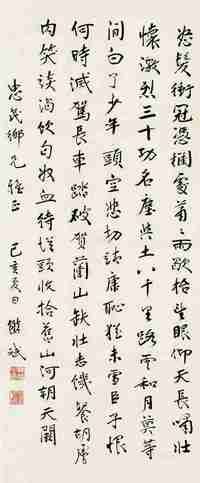 怒髮衝冠憑欄處蕭〻雨歇抬望眼仰天長嘯壯
懷激烈三十功名塵與土八千里路雲和月莫等
閒白了少年頭空悲切靖康恥猶未雪臣子恨
何時滅駕長車踏破賀蘭山缺壯志饑餐胡虜
肉笑談渴飲匈奴血待從頭收拾舊山河朝天闕
忠民鄉兄雅正 己亥夏日